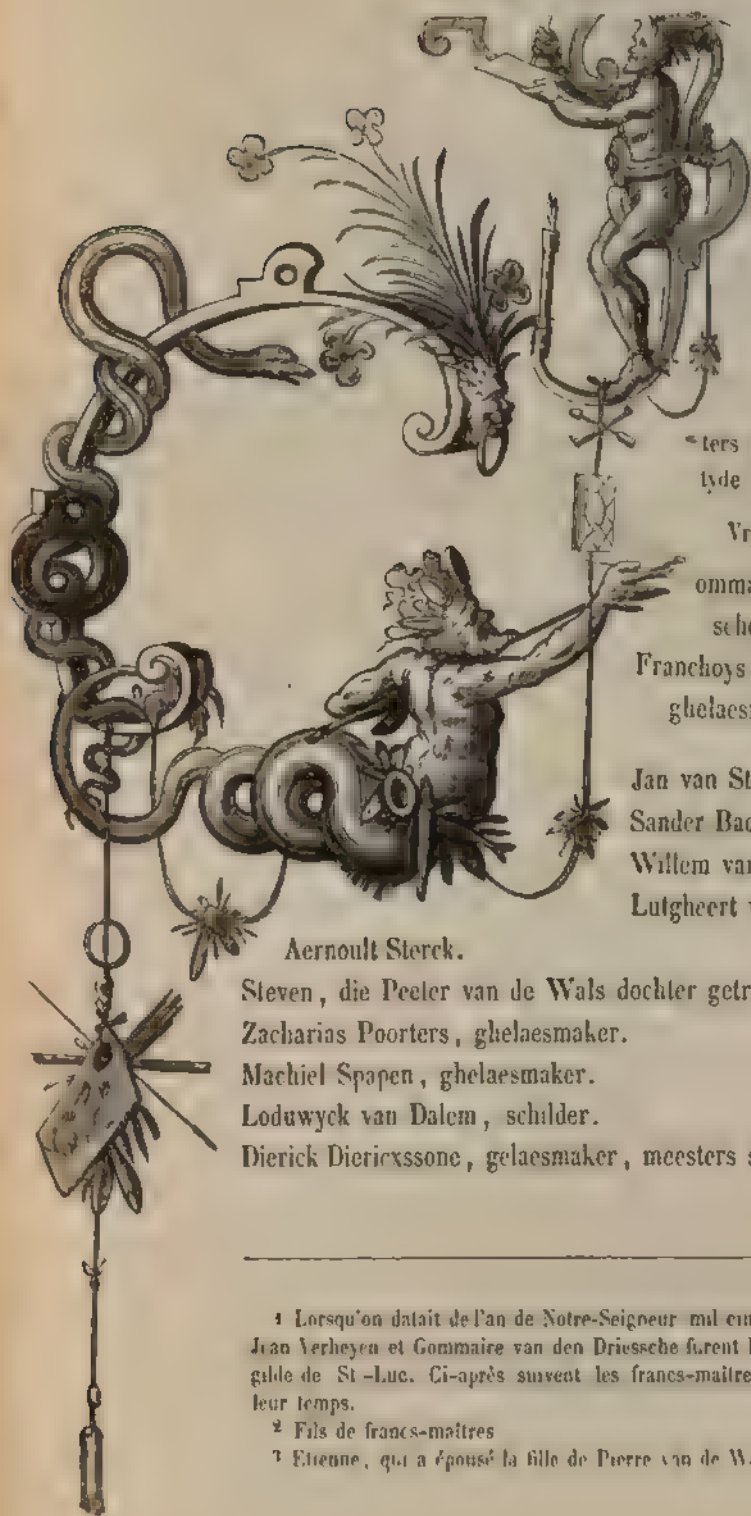 ters
tyde
Vr
omma
sche
Franchoys
ghelaes
Jan van St
Sander Bac
Willem van
Lutgheert v
Aernoult Sterck.
Steven, die Peeter van de Wals dochter getr
Zacharias Poorters, ghelaesmaker.
Machiel Spapen, ghelaesmaker.
Loduwyck van Dalem, schilder.
Dierick Diericxssone, gelaesmaker, meesters s
1 Lorsqu'on datait de l'an de Notre-Seigneur mil cin
Jean Verheyen et Gommaire van den Driessche furent
gilde de St-Luc. Ci-après suivent les francs-maître
leur temps.
2 Fils de francs-maîtres
3 Etienne, qui a épousé la fille de Pierre van de W.